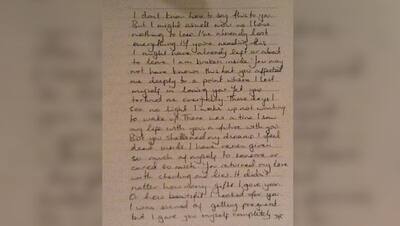 I dont know how to say this to you
But I might aswell now as I have
nothing to lose. I've already lost
everything. If you're reading this
I might have already left or about
to leave. I am broken inside. You may
not have known this but you affected
me deeply to a point where I lost
myself in loving you. Yet you
tortured me everyday. These days I
see no light I wake up not wanting
to wake up. There was a time I saw
my life with you, a future with you.
But you shattered my dreams. I feel
dead inside. I have never given
so much of myself to someone or
cared so much. You returned my love
with cheating and lies. It didn't
matter how many gifts I gave you
Or how beautiful I looked for you
I was scared of getting pregnant
but I gave you myself completely